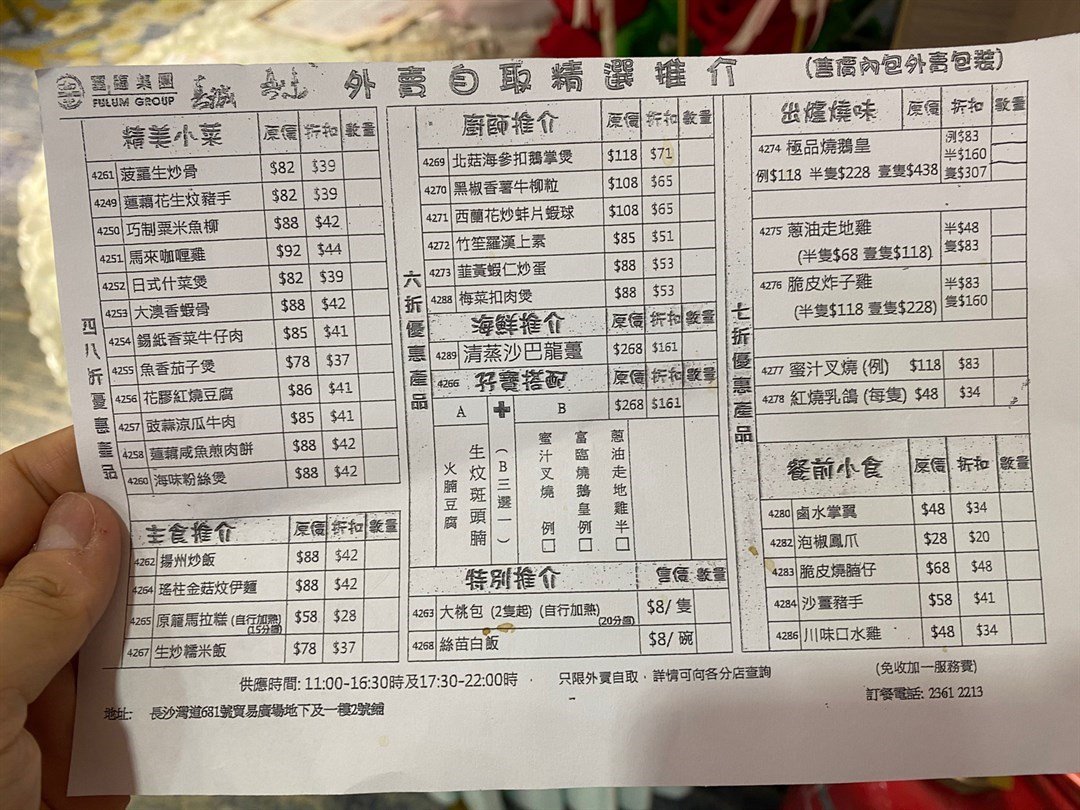 富臨集團
FULUM GROUP
外賣自取精選推介
(售價內包外賣包裝)
四八折優惠產品
精美小菜 原價 折扣 數量
4261 菠蘿生炒骨 $82 $39
4249 蓮藕花生炆豬手 $82 $39
4250 巧制粟米魚柳 $88 $42
4251 馬來咖喱雞 $92 $44
4252 日式什菜煲 $82 $39
4253 大澳香蝦骨 $88 $42
4254 錫紙香菜牛仔肉 $85 $41
4255 魚香茄子煲 $78 $37
4256 花膠紅燒豆腐 $86 $41
4257 豉蒜涼瓜牛肉 $85 $41
4258 蓮藕咸魚煎肉餅 $88 $42
4260 海味粉絲煲 $88 $42
主食推介 原價 折扣 數量
4262 揚州炒飯 $88 $42
4264 瑤柱金菇炆伊麵 $88 $42
4265 原籠馬拉糕 (自行加熱) $58 $28
(15分鐘)
4267 生炒糯米飯 $78 $37
六折優惠產品
廚師推介 原價 折扣 數量
4269 北菇海參扣鵝掌煲 $118 $71
4270 黑椒香薯牛柳粒 $108 $65
4271 西蘭花炒蚌片蝦球 $108 $65
4272 竹笙羅漢上素 $85 $51
4273 韮黃蝦仁炒蛋 $88 $53
4288 梅菜扣肉煲 $88 $53
海鮮推介 原價 折扣 數量
4289 清蒸沙巴龍躉 $268 $161
4266 孖寶搭配 原價 折扣 數量
A + B $268 $161
生炆斑頭腩
火腩豆腐
(B三選一)
蜜汁叉燒 例□
富臨燒鵝皇例□
蔥油走地雞半□
特別推介 售價 數量
4263 大桃包 (2隻起) (自行加熱) $8/ 隻
(20分鐘)
4268 絲苗白飯 $8/ 碗
七折優惠產品
出爐燒味 原價 折扣 數量
4274 極品燒鵝皇 例$83
半$160
例$118 半隻$228 壹隻$438 壹$307
4275 蔥油走地雞 半$48
(半隻$68 壹隻$118) 隻$83
4276 脆皮炸子雞 半$83
(半隻$118 壹隻$228) 隻$160
4277 蜜汁叉燒 (例) $118 $83
4278 紅燒乳鴿 (每隻) $48 $34
餐前小食 原價 折扣 數量
4280 鹵水掌翼 $48 $34
4282 泡椒鳳爪 $28 $20
4283 脆皮燒腩仔 $68 $48
4284 沙薑豬手 $58 $41
4286 川味口水雞 $48 $34
供應時間: 11:00-16:30時及17:30-22:00時 , 只限外賣自取，詳情可向各分店查詢
(免收加一服務費)
訂餐電話: 2361 2213
地址: 長沙灣道681號貿易廣場地下及一樓2號舖